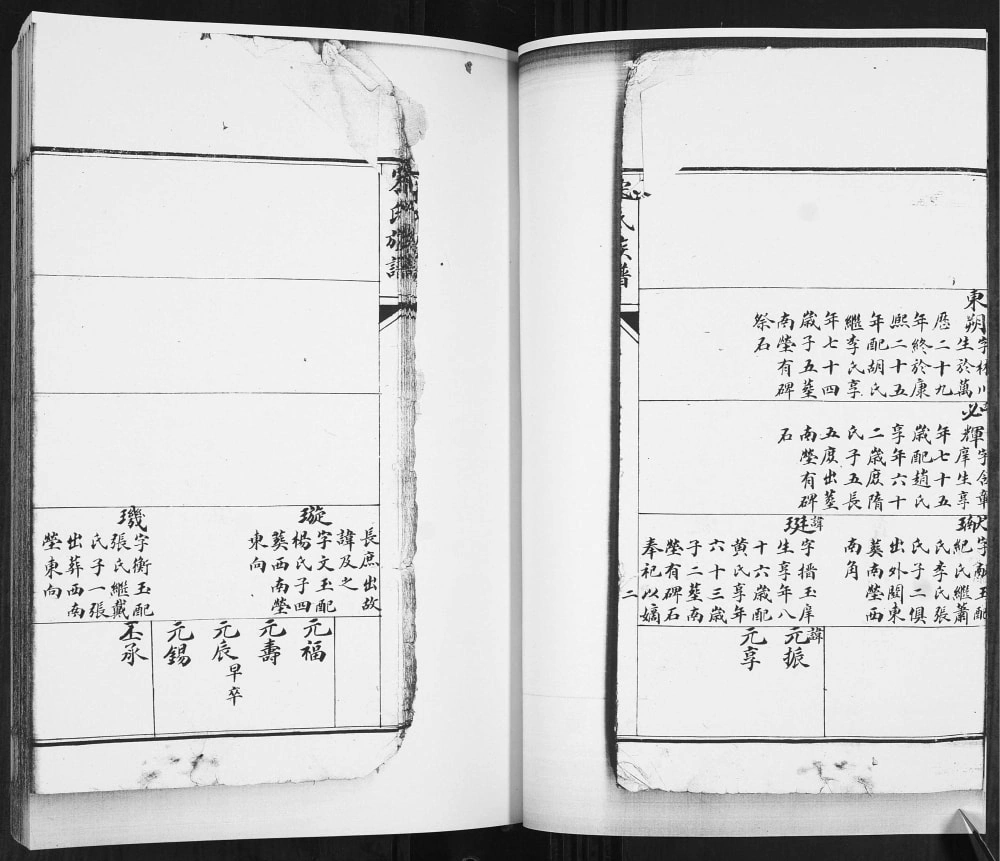 東朔字林川
生於萬
歷二十九
年終於康
熙二十五
年配胡氏
繼李氏享
年七十四
歲子五塟
南塋有碑
祭石
必輝字含章
庠生享
年七十五
歲配趙氏
享年六十
二歲庶隋
氏子五長
五庶出塟
南塋有碑
石
字獻玉配
紀氏繼蕭
氏李氏張
氏子二俱
出外關東
葬南塋西
南角
諱珽
字搢玉庠
生享年八
十六歲配
黄氏享年
六十三歲
子二塟南
塋有碑石
奉祀以嫡
諱元振
元享
氏族譜
二
氏族譜
長庶出故
諱及之
璇字文玉配
楊氏子四
葬西南塋
東向
璣字衡玉配
張氏繼戴
氏子一張
出葬西南
塋東向
元福
元壽
元辰早卒
元錫
玉承